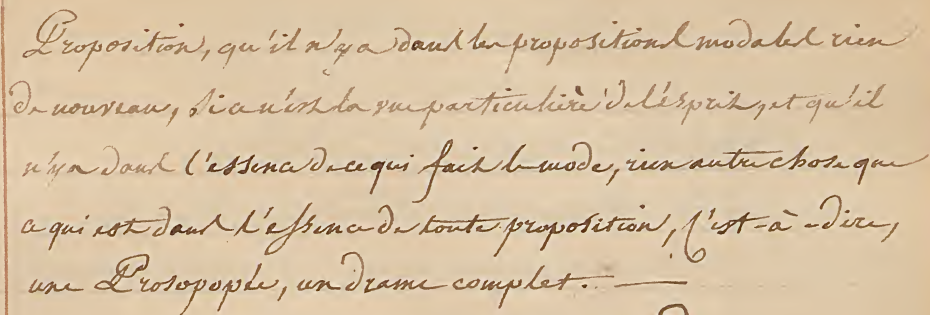 Proposition, qu'il n'y a dans les propositions modales rien
de nouveau, si ce n'est la vue particulière de l'ésprit, et qu'il
n'y a dans l'essence de ce qui fait le mode, rien autre chose que
ce qui est dans l'essence de toute proposition, c'est-à-dire,
une Prosopopée, un drame complet. —